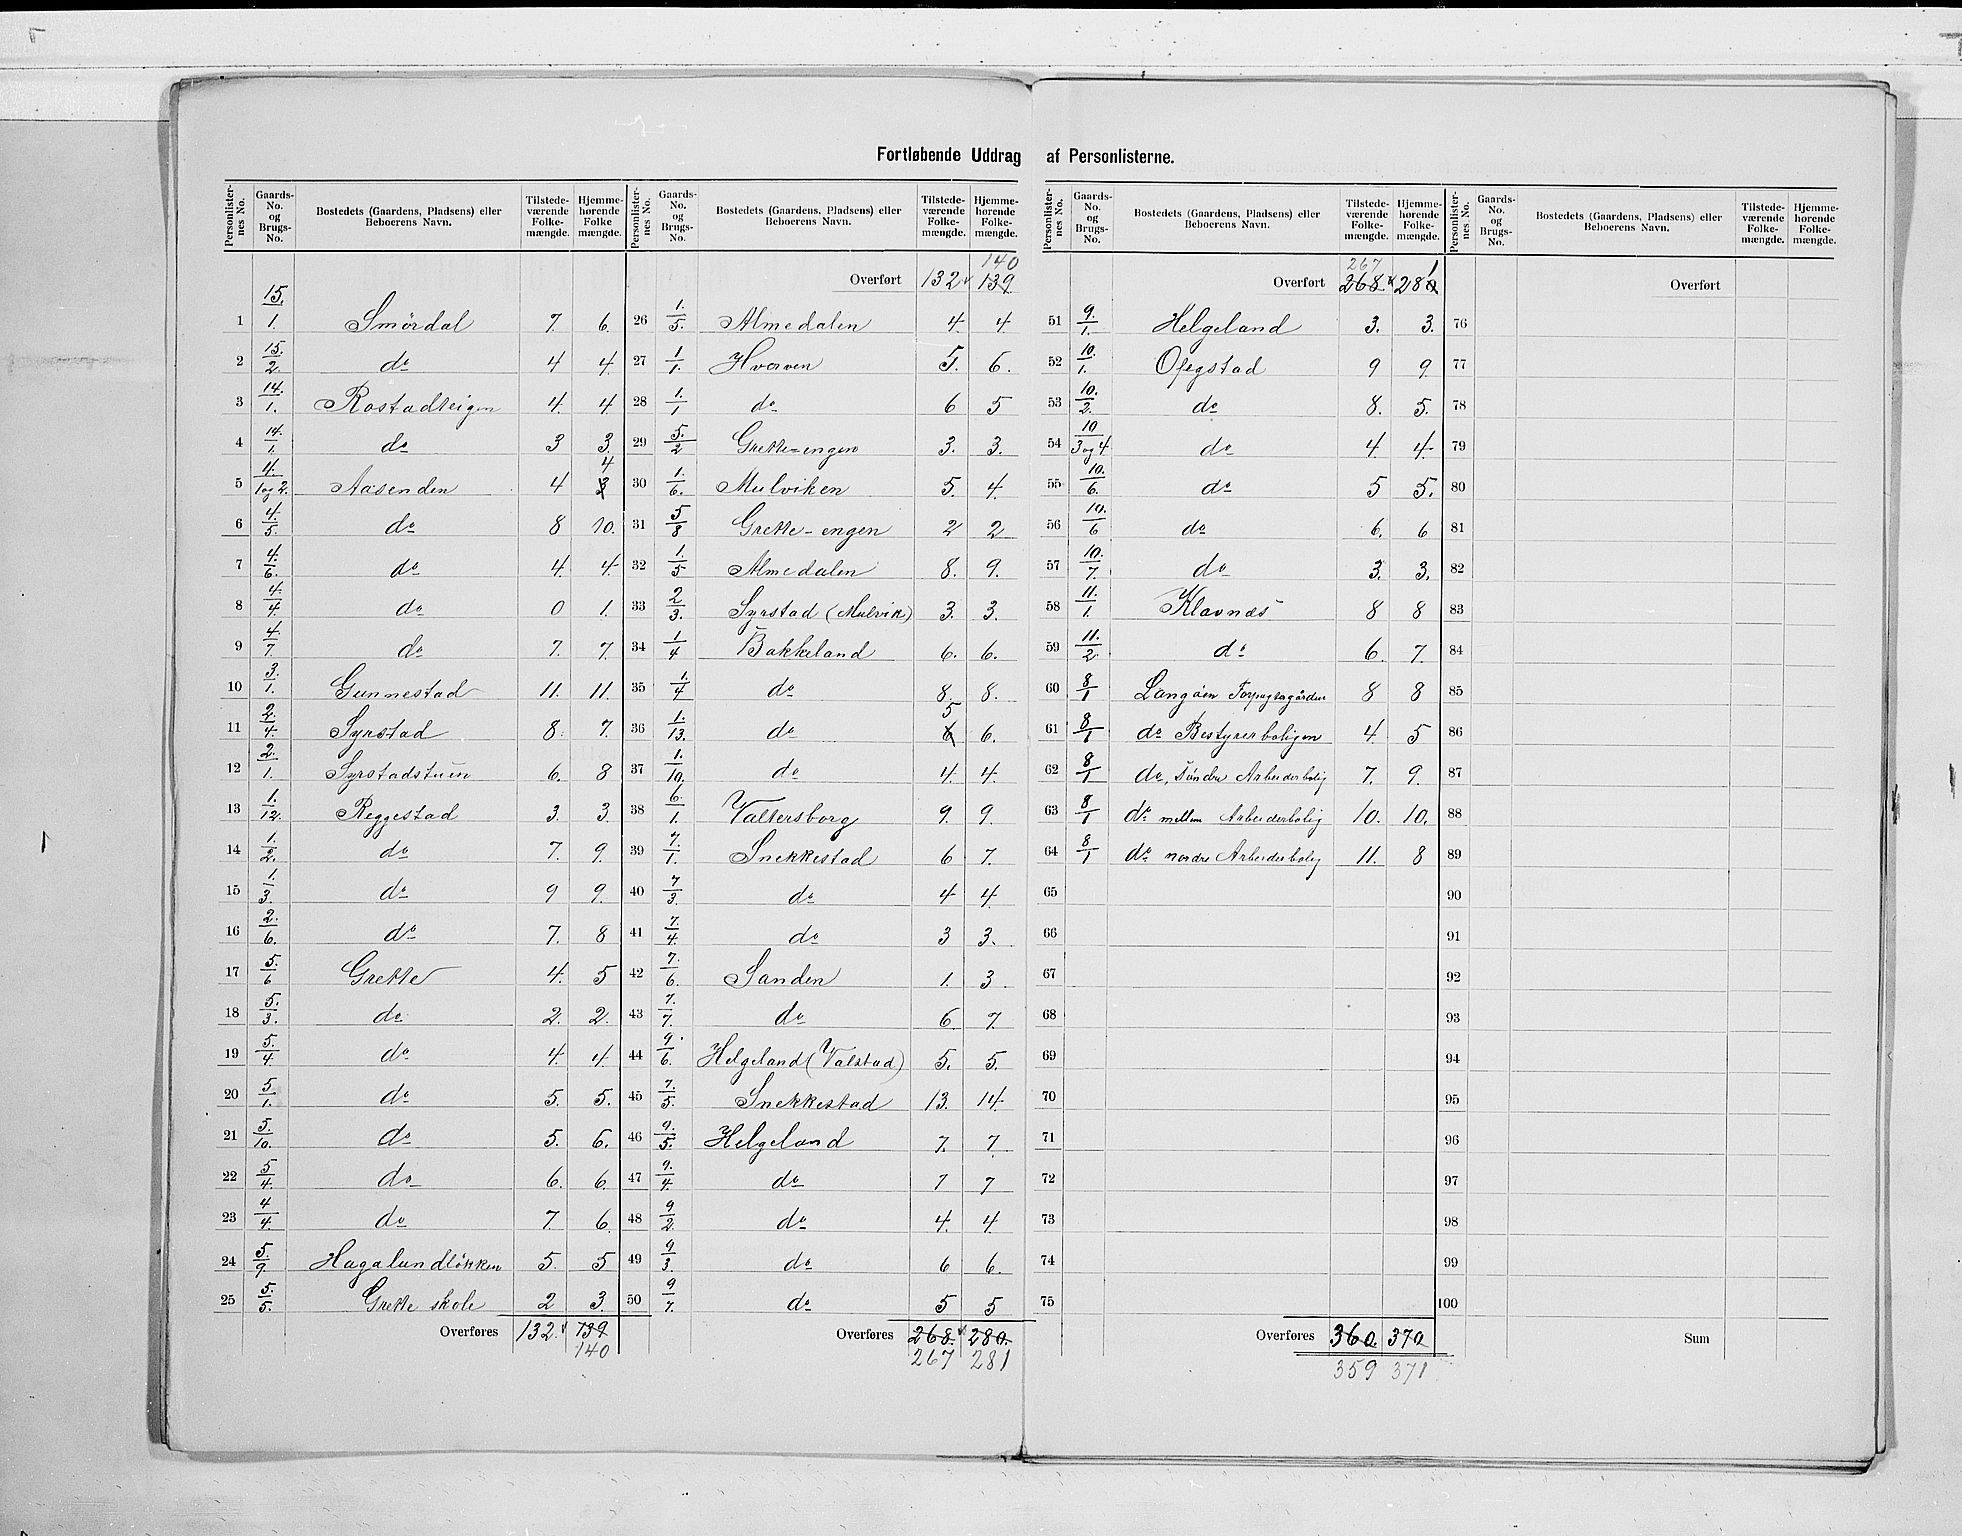 Fortløbende Uddrag af Personlisterne.
Personlister-nes No. | Gaards-No. og Brugs-No. | Bostedets (Gaardens, Pladsens) eller Beboerens Navn. | Tilstede-værende Folke-mængde. | Hjemme-hørende Folke mængde.
1 | 15./1. | Smördal | 7. | 6.
2 | 15./2. | do | 4 | 4.
3 | 14./1. | Rostadteigen | 4. | 4
4 | 14./1. | do | 3 | 3.
5 | 4./1og2. | Aasenden | 4 | 3 4
6 | 4./5. | do | 8 | 10.
7 | 4./6. | do | 4. | 4.
8 | 4./4. | do | 0 | 1.
9 | 4./7. | do | 7. | 7.
10 | 3./1. | Gunnestad | 11. | 11.
11 | 2./4. | Syrstad | 8. | 7.
12 | 2./1. | Syrstadstuen | 6. | 8
13 | 1./12. | Reggestad | 3. | 3.
14 | 1./2. | do | 7. | 9.
15 | 1./3. | do | 9 | 9.
16 | 2./6. | do | 7. | 8
17 | 5./6 | Grette | 4. | 5
18 | 5./3. | do | 2. | 2.
19 | 5./4. | do | 4. | 4.
20 | 5/1. | do | 5. | 5.
21 | 5./10. | do | 5. | 6.
22 | 5/4. | do | 6. | 6.
23 | 4/4. | do | 7. | 6.
24 | 5./9. | Hagalundlökken | 5. | 5
25 | 5./5. | Grette skole | 2 | 3.
Overføres | 132. | 139 140
Personlister-nes No. | Gaards-No. og Brugs-No. | Bostedets (Gaardens, Pladsens) eller Beboerens Navn. | Tilstede-værende Folke-mængde. | Hjemme-hørende Folke-mængde.
Overført | 132 | 139 140
26 | 1./5. | Almedalen | 4. | 4.
27 | 1/1. | Hvorven | 5. | 6.
28 | 1./1 | do | 6 | 5
29 | 5./2 | Grette=engen | 3. | 3.
30 | 1./6. | Mulviken | 5. | 4.
31 | 5/8 | Grette-engen | 2 | 2
32 | 1./5 | Almedalen | 8. | 9.
33 | 2/3. | Syrstad (Mulvik) | 3. | 3.
34 | 1/4 | Bakkeland | 6. | 6.
35 | 1./4 | do | 8. | 8.
36 | 1./13. | do | 6 5 | 6.
37 | 1./10. | do | 4. | 4.
38 | 6./1. | Valtersborg | 9. | 9.
39 | 7./1. | Snekkestad | 6 | 7.
40 | 7/3. | do | 4 | 4.
41 | 7./4. | do | 3 | 3.
42 | 7./6. | Sanden | 1. | 3.
43 | 7./7. | do | 6. | 7.
44 | 9./6. | Helgeland (Valstad) | 5. | 5.
45 | 7./5. | Snekkestad | 13. | 14.
46 | 9./5. | Helgeland | 7. | 7.
47 | 9./4. | do | 7 | 7
48 | 9/2. | do | 4. | 4.
49 | 9/3. | do | 6 | 6.
50 | 9/7. | do | 5 | 5
Overføres | 268. 267 | 280. 281
Personlister-nes No. | Gaards-No. og Brugs-No. | Bostedets (Gaardens, Pladsens) eller Beboerens Navn. | Tilstede-værende Folke-mængde. | Hjemme-hørende Folke-mængde.
Overført | 268 267 | 280 1
51 | 9./1. | Helgeland | 3. | 3.
52 | 10./1. | Ofegstad | 9 | 9.
53 | 10./2. | do | 8. | 5.
54 | 10/3 og 4. | do | 4 | 4.
55 | 10./6. | do | 5 | 5.
56 | 10./6 | do | 6. | 6
57 | 10./7. | do | 3. | 3.
58 | 11./1. | Klavnæs | 8 | 8
59 | 11./2. | do | 6. | 7.
60 | 8/1 | Langöen Forpagtergården | 8 | 8
61 | 8/1 | do Bestyrerboligen | 4. | 5
62 | 8/1 | do, söndre Arbeiderbolig | 7. | 9.
63 | 8/1 | do mellem Arbeiderbolig | 10. | 10.
64 | 8/1 | do nordre Arbeiderbolig | 11. | 8
65
66
67
68
69
70
71
72
73
74
75
Overføres | 360. 359 | 370 371
Personlister-nes No. | Gaards-No. og Brugs-No. | Bostedets (Gaardens, Pladsens) eller Beboerens Navn. | Tilstede-værende Folke-mængde. | Hjemme-hørende Folke-mængde.
Overført
76
77
78
79
80
81
82
83
84
85
86
87
88
89
90
91
92
93
94
95
96
97
98
99
100
Sum